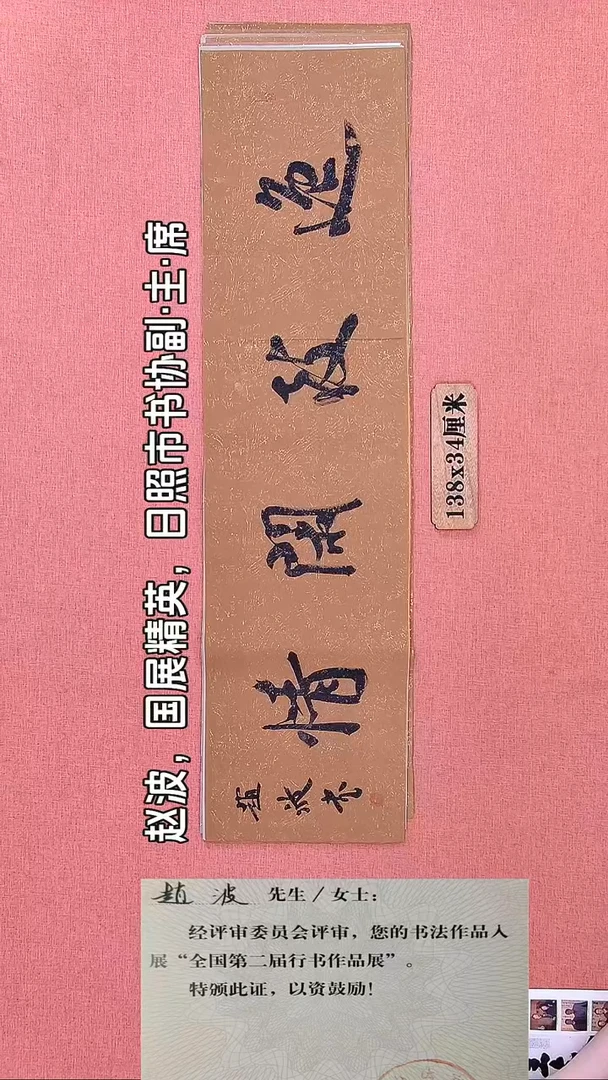 赵波，国展精英，日照市书协副·主·席
逸致閑情
趙波
138x34厘米
趙波 先生／女士：
经评审委员会评审，您的书法作品入
展“全国第二届行书作品展”。
特颁此证，以资鼓励！